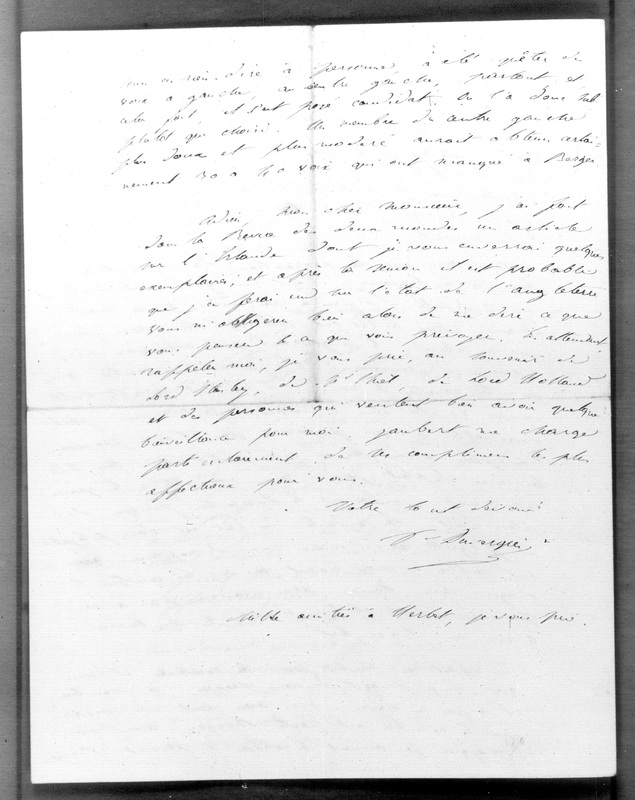 rien dire à personne, a été quêter des
voix à gauche, au centre gauche, partout et
cela fait, il s'est posé candidat. On l'a donc
plutôt que choisi. Un membre du centre gauche
plus doux et plus modéré auroit obtenu certai-
nement 30 a 40 voix qui ont manqué à
Adieu, mon cher Monsieur, j'ai fait
dans la Revue des deux mondes un article
sur l'Irlande dont je vous enverrai quelques
exemplaires, et après la session il est probable
que j'en ferai un sur l'état de l'angleterre
vous m'obligerez bien alors de me dire ce que
vous pensez et ce que vous prévoyez. En attendant
rappelez moi, je vous prie, au souvenir de
Lord de de Lord Holland
et des personnes qui veulent bien avoir quelque
bienveillance pour moi. Jaubert me charge
particulierement de ses complimens les plus
affectueux pour vous.
Votre tout dévoué
Mille amitiés à Herbet, je vous prie.